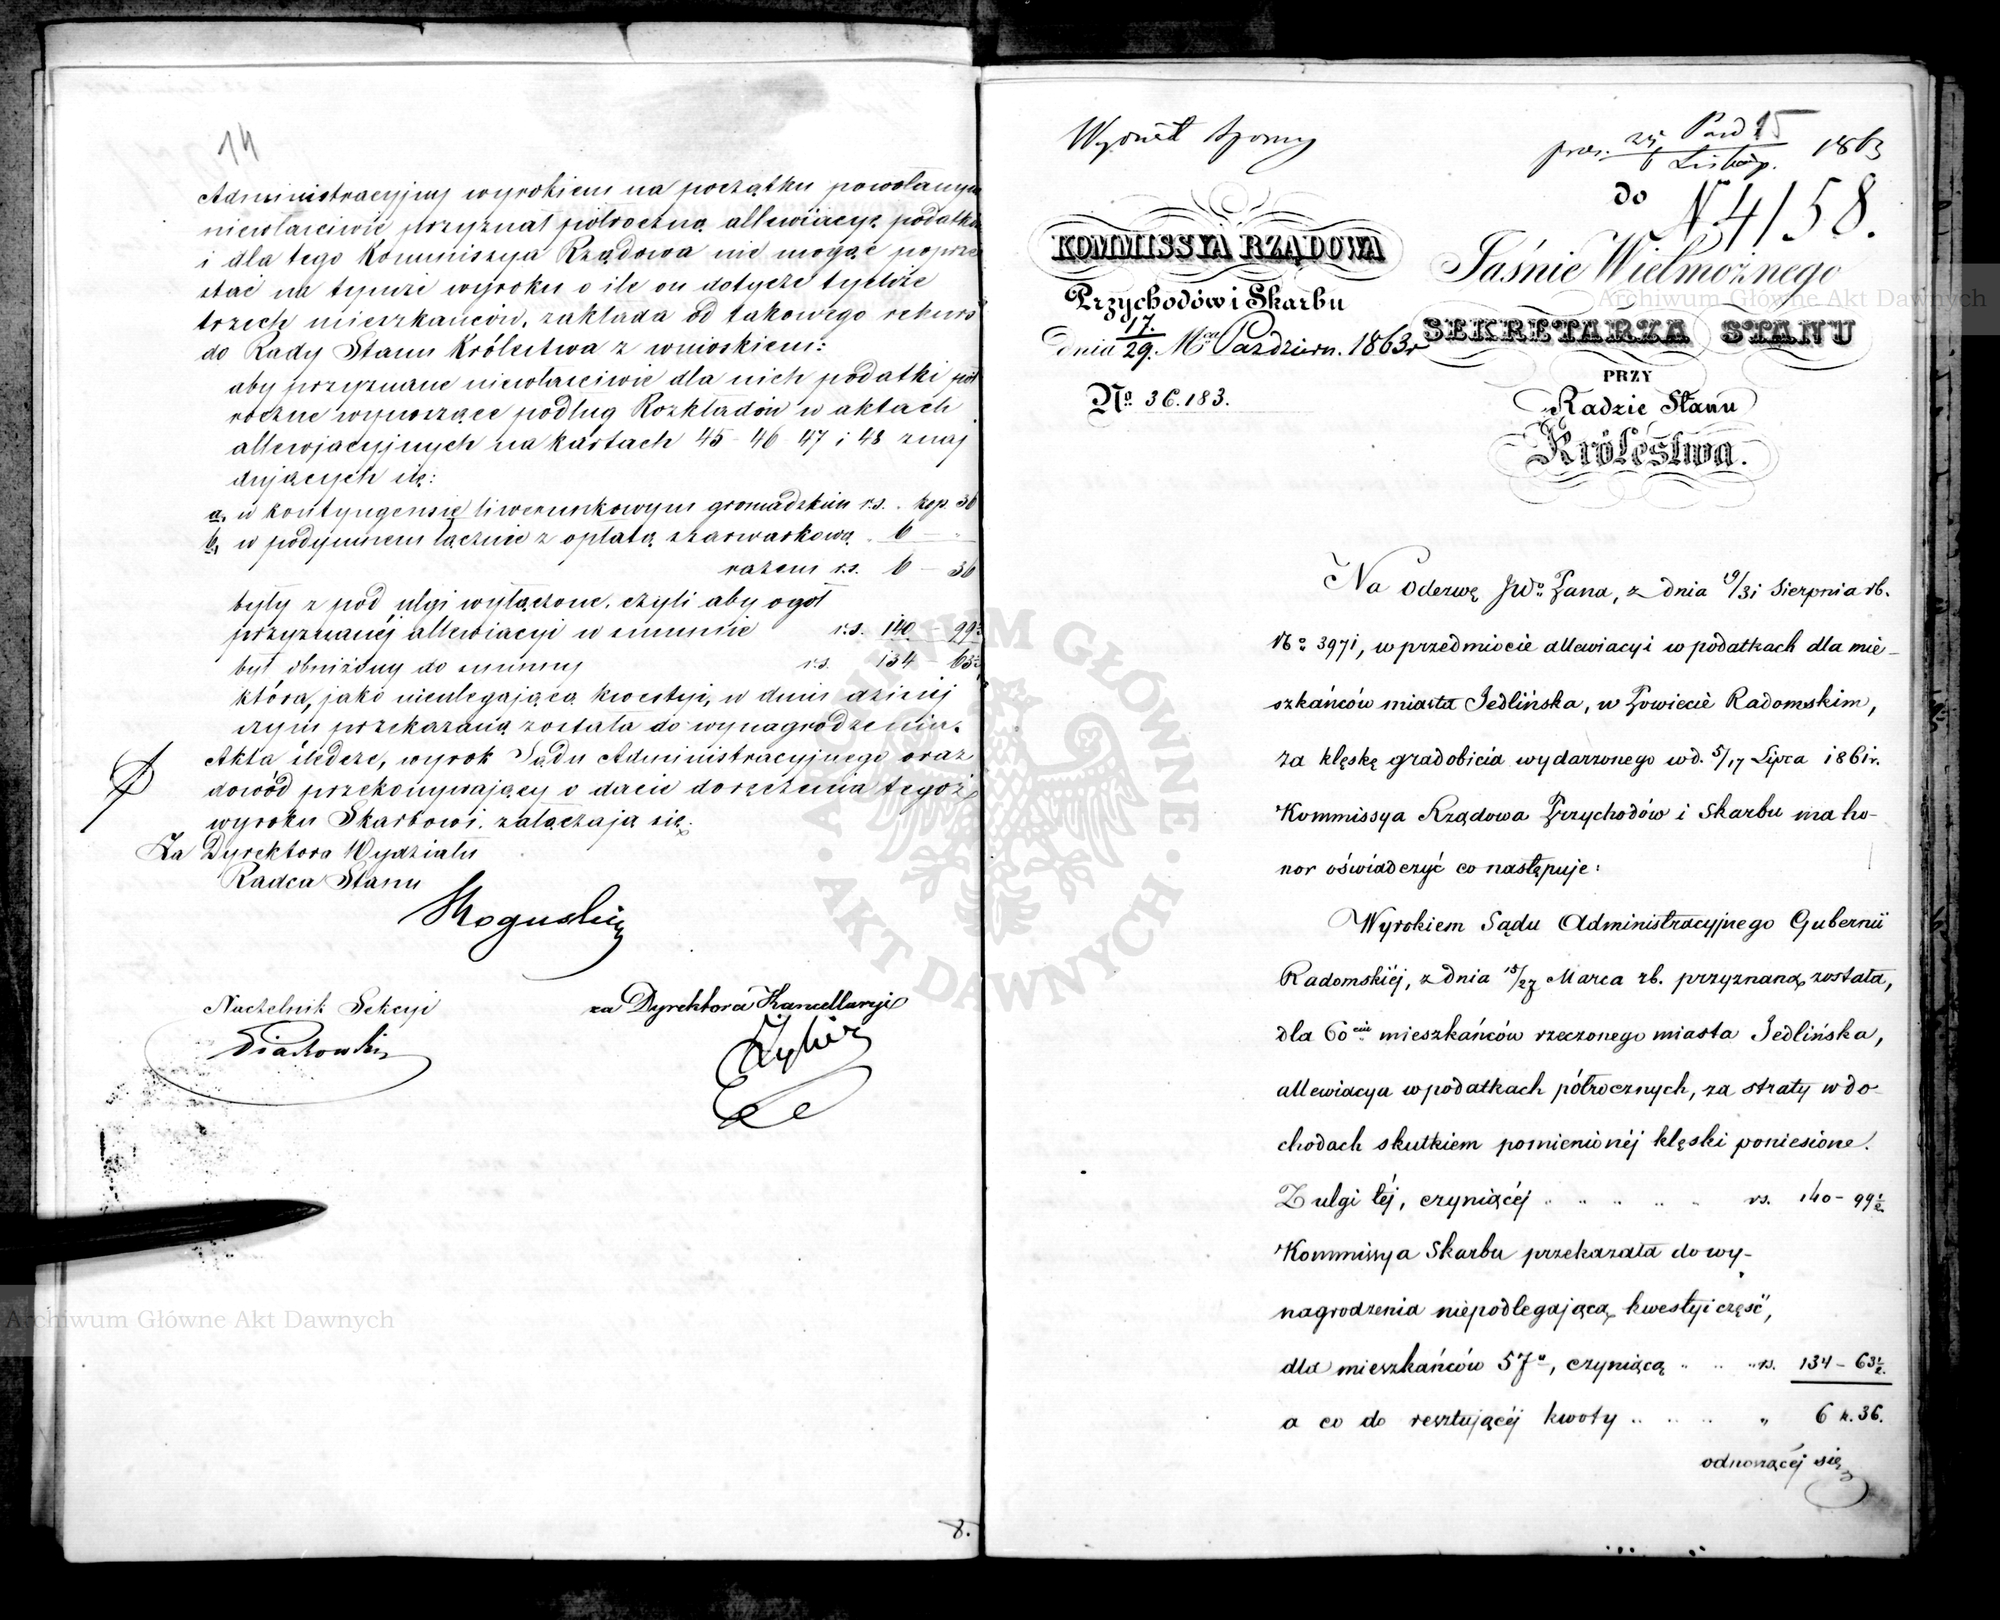 14
Administracyjny wyrokiem na początku powołanym
niewłaściwie przyznał półroczną allewiacyę podatku
i dla tego Kommissya Rządowa nie mogąc poprze
stać na tymże wyroku o ile on dotyczy tychże
trzech mieszkańców, zakłada od takowego rekurs
do Rady Stanu Królestwa z wnioskiem:
aby przyznane niewłaściwie dla nich podatki pół
roczne wynoszące podług Rozkładów w aktach
allewjacyjnych na kartach 45 - 46 - 47 i 48 znaj
dujących się:
a, w kontyngensie liwerunkowym gromadzkim r.s. . kop. 36
b, w podymnem łącznie z opłatą szarwarkową . 6 — "
razem r.s. 6 — 36
były z pod ulgi wyłączone, czyli aby ogół
przyznanéj allewiacyi w summie r.s. 140 — 99½
był obniżony do summy r.s. 134 — 63½
która, jako nieulegająca kwestyi, w dniu dzisiej
szym przekazaną została do wynagrodzenia.
Akta śledcze, wyrok Sądu Administracyjnego oraz
dowód przekonywający o dacie doręczenia tegoż
wyroku Skarbowi, załączają się.
Za Dyrektora Wydziału
Radca Stanu
Naczelnik Sekcyi
za Dyrektora Kancellaryi
8.
Wydział Sporny
1863
do
N. 4158.
KOMMISSYA RZĄDOWA
Przychodów i Skarbu
dnia 17./29. Mca Październ. 1863 r
No 36.183.
Jaśnie Wielmożnego
SEKRETARZA STANU
PRZY
Radzie Stanu
Królestwa.
Na Odezwę JWo Pana, z dnia 19/31 Sierpnia rb.
No 3971, w przedmiocie allewiacyi w podatkach dla mie-
szkańców miasta Jedlińska, w Powiecie Radomskim,
za klęskę gradobicia wydarzonego w d. 5/17 Lipca 1861 r.
Kommissya Rządowa Przychodów i Skarbu ma ho-
nor oświadczyć co następuje:
Wyrokiem Sądu Administracyjnego Gubernii
Radomskiéj, z dnia 15/27 Marca rb. przyznaną została,
dla 60ciu mieszkańców rzeczonego miasta Jedlińska,
allewiacya w podatkach półrocznych, za straty w do-
chodach skutkiem pomienionéj klęski poniesione.
Z ulgi téj, czyniącéj " " " " " rs. 140 - 99½
Kommissya Skarbu przekazała do wy-
nagrodzenia niepodlegającą kwestyi część,
dla mieszkańców 57u, czyniącą " " " rs. 134 - 63½
a co do resztującéj kwoty " " " " 6 k. 36.
odnoszącéj się
ARCHIWUM GŁÓWNE · AKT DAWNYCH ·
Archiwum Główne Akt Dawnych
Archiwum Główne Akt Dawnych